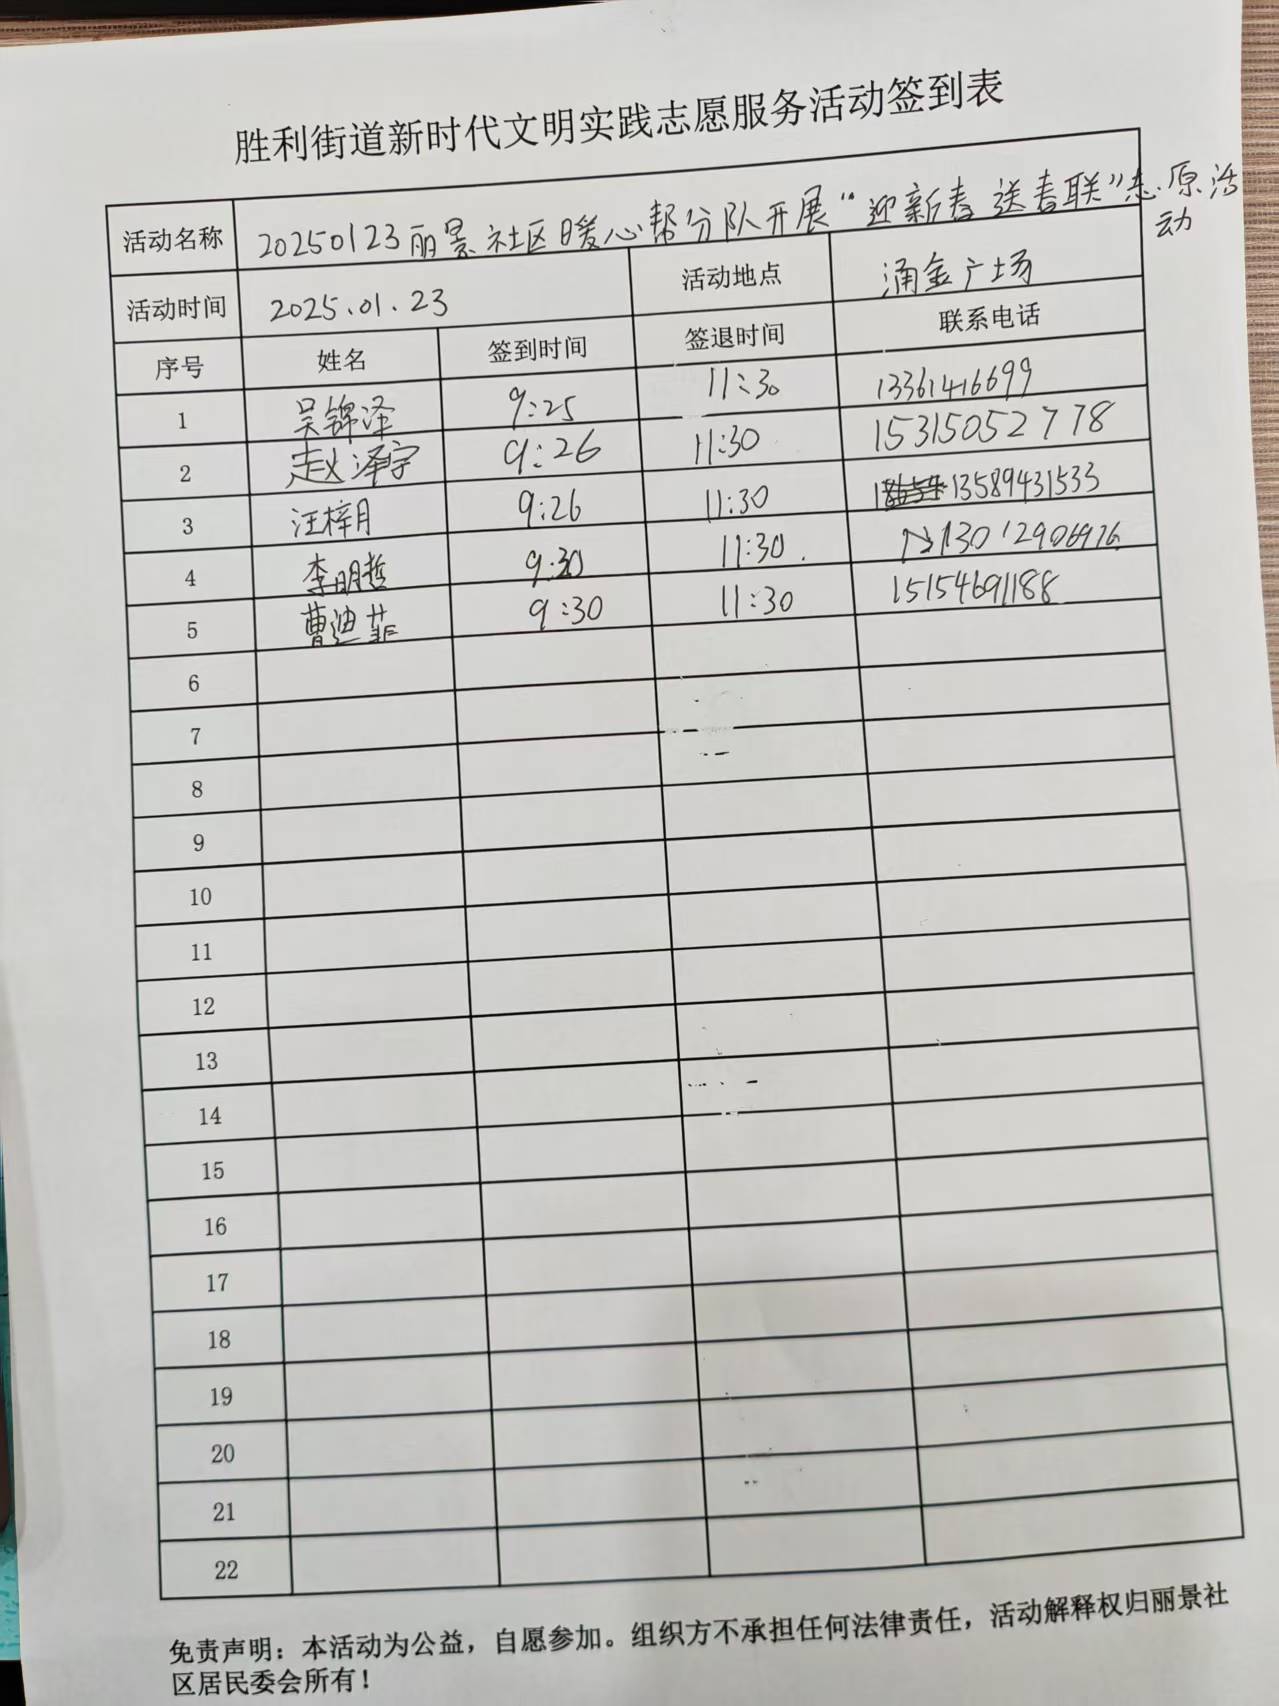 胜利街道新时代文明实践志愿服务活动签到表
活动名称 20250123丽景社区暖心帮分队开展“迎新春 送春联”志原活
动
活动时间 2025.01.23 活动地点 涌金广场
序号 姓名 签到时间 签退时间 联系电话
1 吴锦泽 9:25 11:30 13361416699
2 赵泽宇 9:26 11:30 15315052778
3 汪梓月 9:26 11:30 13589431533
4 李明哲 9:30 11:30. 13012906976
5 曹迪菲 9:30 11:30 15154691188
6
7
8
9
10
11
12
13
14
15
16
17
18
19
20
21
22
免责声明：本活动为公益，自愿参加。组织方不承担任何法律责任，活动解释权归丽景社
区居民委会所有！